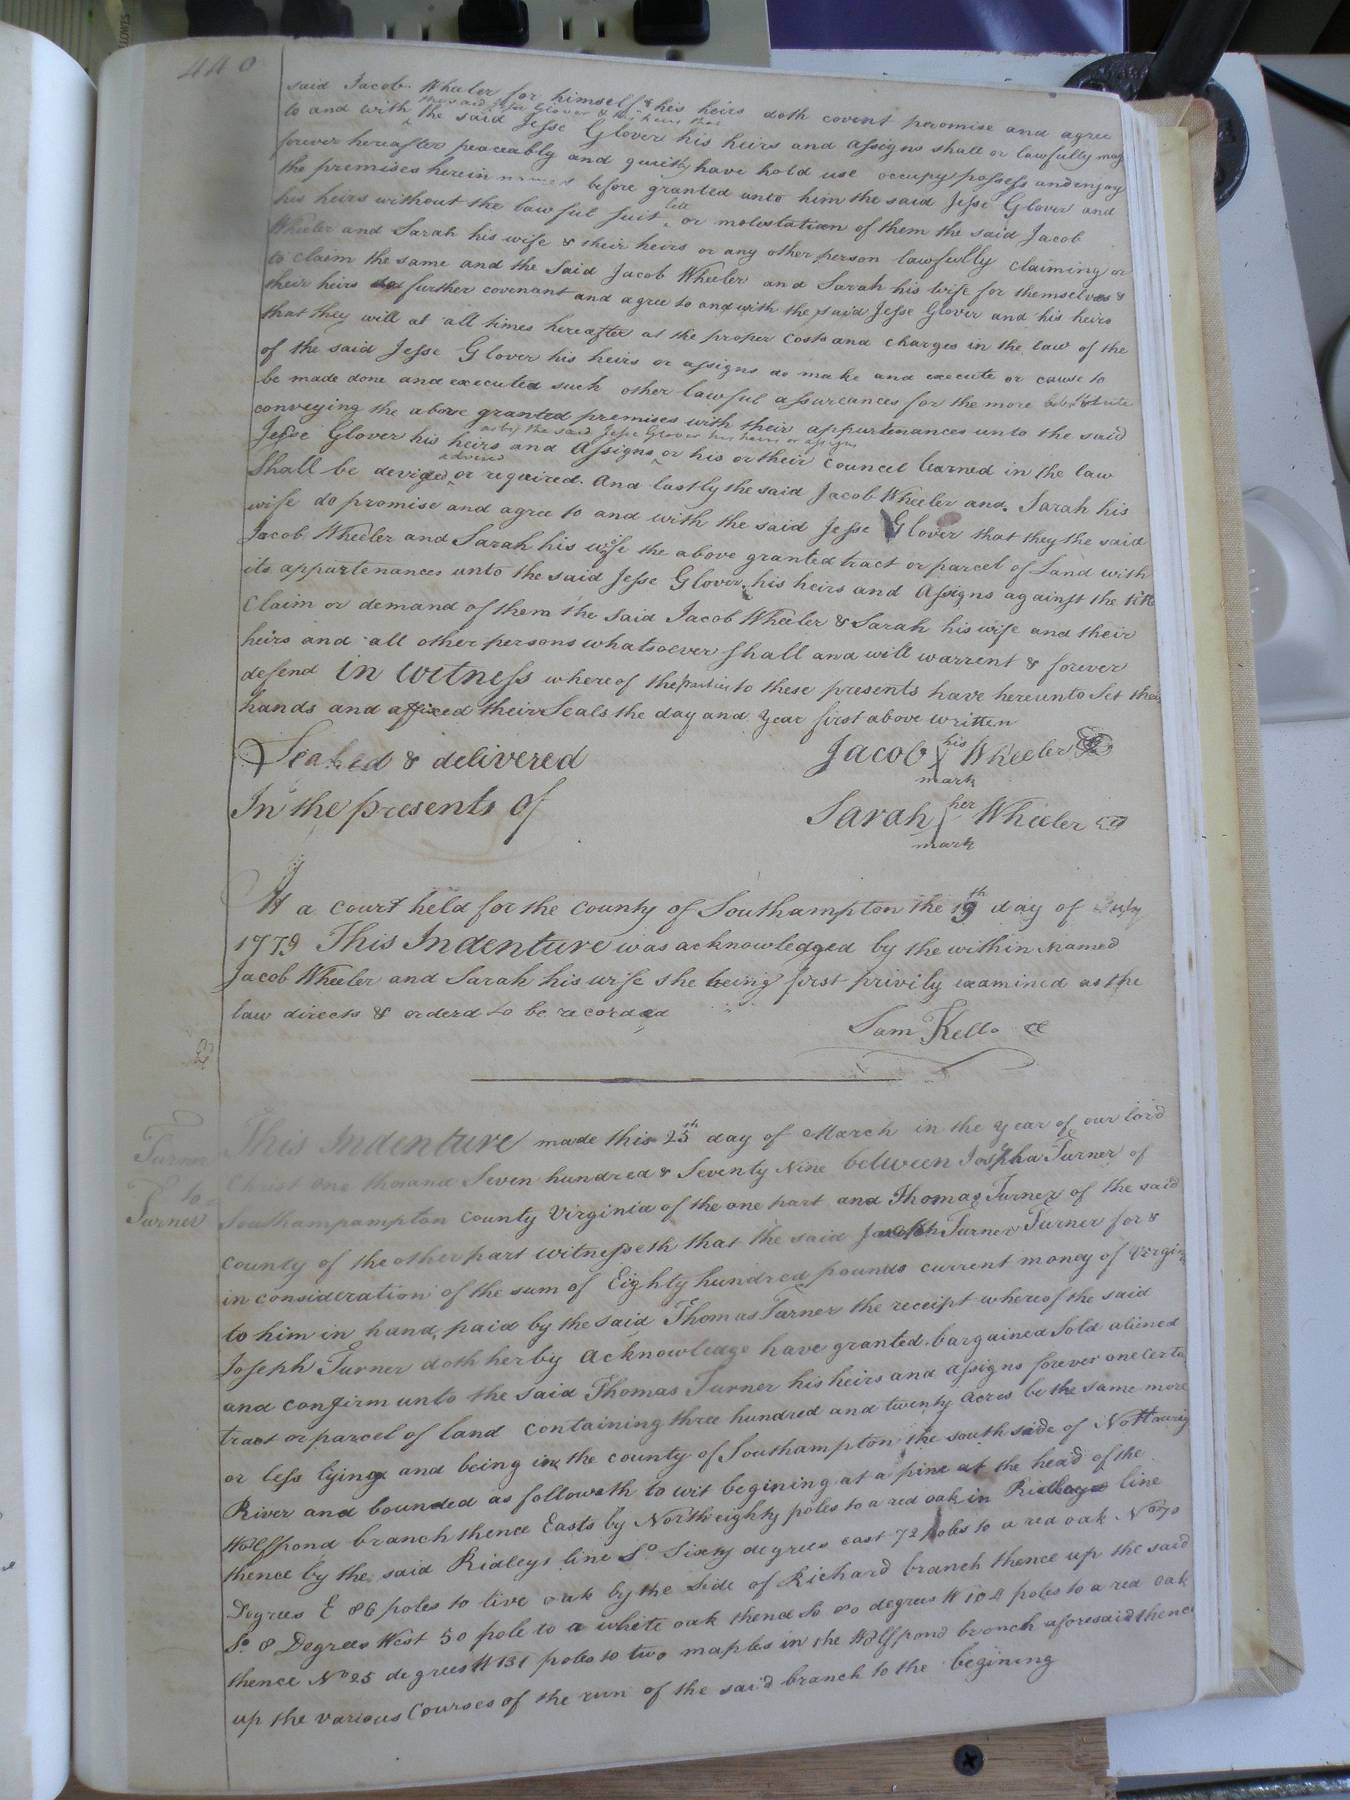 440
said Jacob Wheeler for himself & his heirs doth covent peromise and agree
the said Jesse Glover & his heirs that
to and with the said Jesse Glover his heirs and assigns shall or lawfully may
forever hereafter peaceably and quietly have hold use occupy possess and enjoy
the premises herein before granted unto him the said Jesse Glover and
his heirs without the lawful suit lett or molestation of them the said Jacob
Wheeler and Sarah his wife & their heirs or any other person lawfully claiming or
to claim the same and the Said Jacob Wheeler and Sarah his wife for themselves &
their heirs further covenant and agree to and with the said Jesse Glover and his heirs
that they will at all times hereafter at the proper Costs and Charges in the law of the
of the said Jesse Glover his heirs or assigns do make and execute or cause to
be made done and executed such other lawful assureances for the more
conveying the above granted premises with their appurtenances unto the said
as by the said Jesse Glover his heirs or assigns
Jesse Glover his heirs and Assigns or his or their Councel learned in the law
advised
Shall be devized or required. And lastly the said Jacob Wheeler and Sarah his
wife do promise and agree to and with the said Jesse Glover that they the said
Jacob Wheeler and Sarah his wife the above granted tract or parcel of Land with
its appurtenances unto the said Jesse Glover his heirs and Assigns against the title
Claim or demand of them the Said Jacob Wheeler & Sarah his wife and their
heirs and all other persons whatsoever shall and will warrent & forever
defend in witness whereof the parties to these presents have hereunto Set their
hands and affixed their Seals the day and year first above written
Sealed & delivered
In the presents of
Jacob his mark Wheeler
Sarah her mark Wheeler
At a court held for the county of Southampton the 19th day of July
1779 This Indenture was acknowledged by the within named
Jacob Wheeler and Sarah his wife she being first privily examined as the
law directs & orderd to be recorded
Sam Kello CC
Turner
to
Turner
This Indenture made this 25th day of March in the year of our lord
Christ one thousand Seven hundred & Seventy Nine between Joseph Turner of
Southampampton County Virginia of the one part and Thomas Turner of the said
County of the other part witnesseth that the said Joseph Turner Turner for &
in consideration of the sum of Eighty hundred pounds current money of Virginia
to him in hand paid by the said Thomas Turner the receipt whereof the said
Joseph Turner doth herby acknowledge have granted bargained Sold aliened
and confirm unto the said Thomas Turner his heirs and assigns forever one Certa
tract or parcel of land containing three hundred and twenty acres be the same more
or less lying and being in the county of Southampton the south side of Nottoway
River and bounded as followeth to wit begining at a pine at the head of the
Wolfpond branch thence Easts by North eighty poles to a red oak in Ridleys line
thence by the said Ridleys line So. Sixty degrees east 72 poles to a red oak No 70
Degrees E 86 poles to live oak by the Side of Richard branch thence up the said
So. 8 Degrees West 50 pole to a white oak thend So 80 degrees W 104 poles to a red oak
thence No 25 degrees W 131 poles to two maples in the Wolfpond branch aforesaid thence
up the various Courses of the run of the said branch to the begining